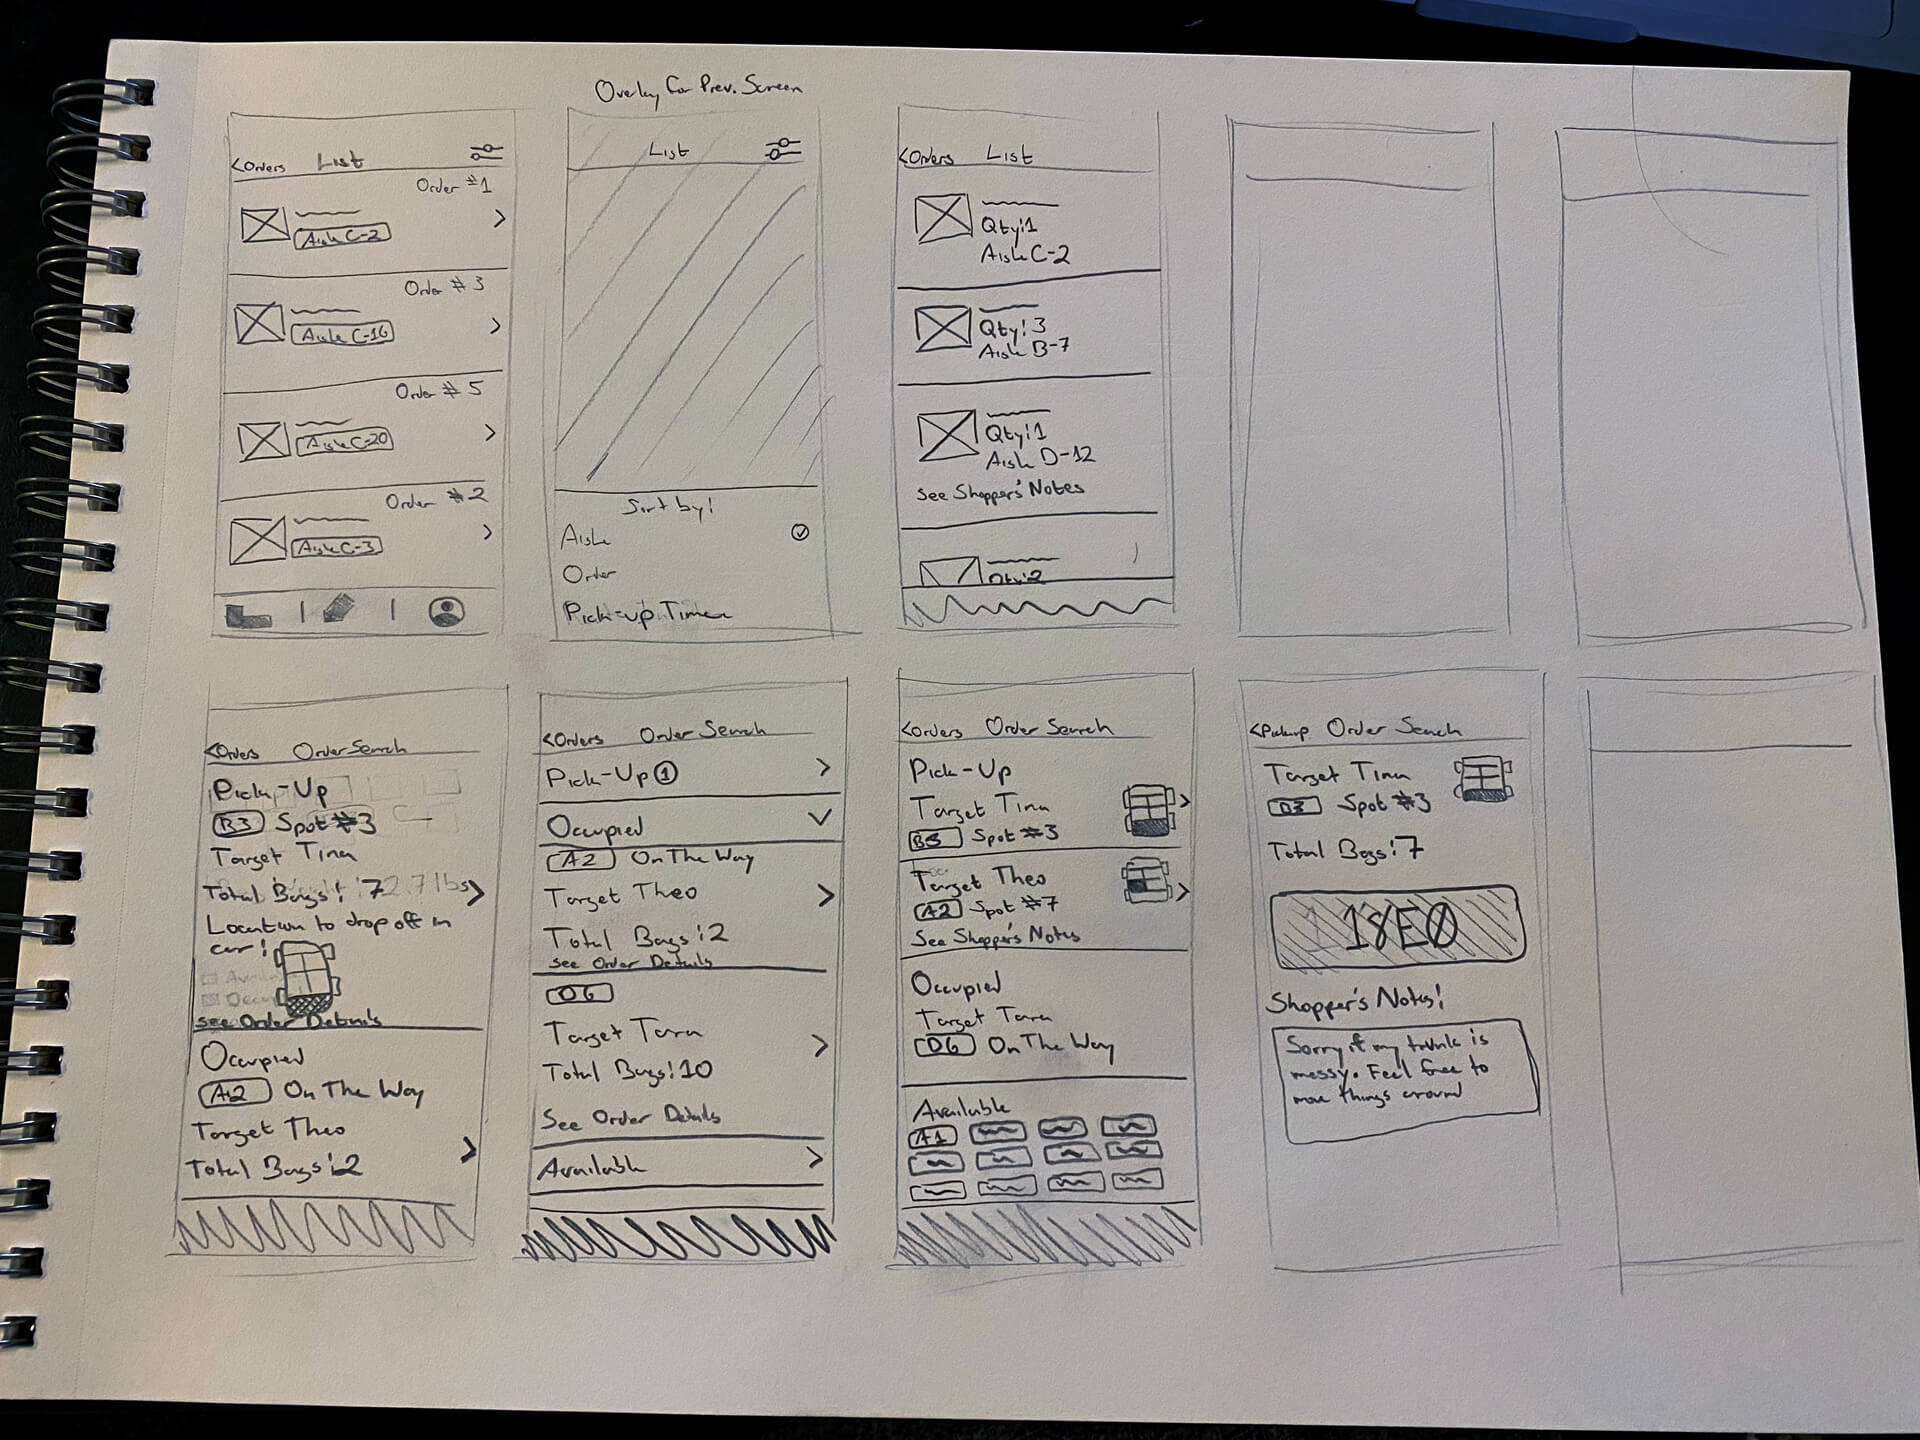 Overlay for Prev. Screen
<Orders List
Order #1
Aisle C-2
Order #3
Aisle C-16
Order #5
Aisle C-20
Order #2
Aisle C-3
List
Sort by:
Aisle
Order
Pick-up Time
<Orders List
Qty:1
Aisle C-2
Qty:3
Aisle B-7
Qty:1
Aisle D-12
See Shopper's Notes
Qty:2
<Orders Order Search
Pick-Up
B3 Spot #3
Target Tina
Total Bags: 7
Location to drop off in
car:
See Order Details
Occupied
A2 On The Way
Target Theo
Total Bags: 2
<Orders Order Search
Pick-Up 1
Occupied
A2 On The Way
Target Theo
Total Bags: 2
See Order Details
D6
Target Tara
Total Bags: 10
See Order Details
Available
<Orders Order Search
Pick-Up
Target Tina
B3 Spot #3
Target Theo
A2 Spot #7
See Shopper's Notes
Occupied
Target Tara
D6 On The Way
Available
A1
<Pickup Order Search
Target Tina
B3 Spot #3
Total Bags: 7
18E0
Shopper's Notes:
Sorry if my trunk is
messy. Feel free to
move things around